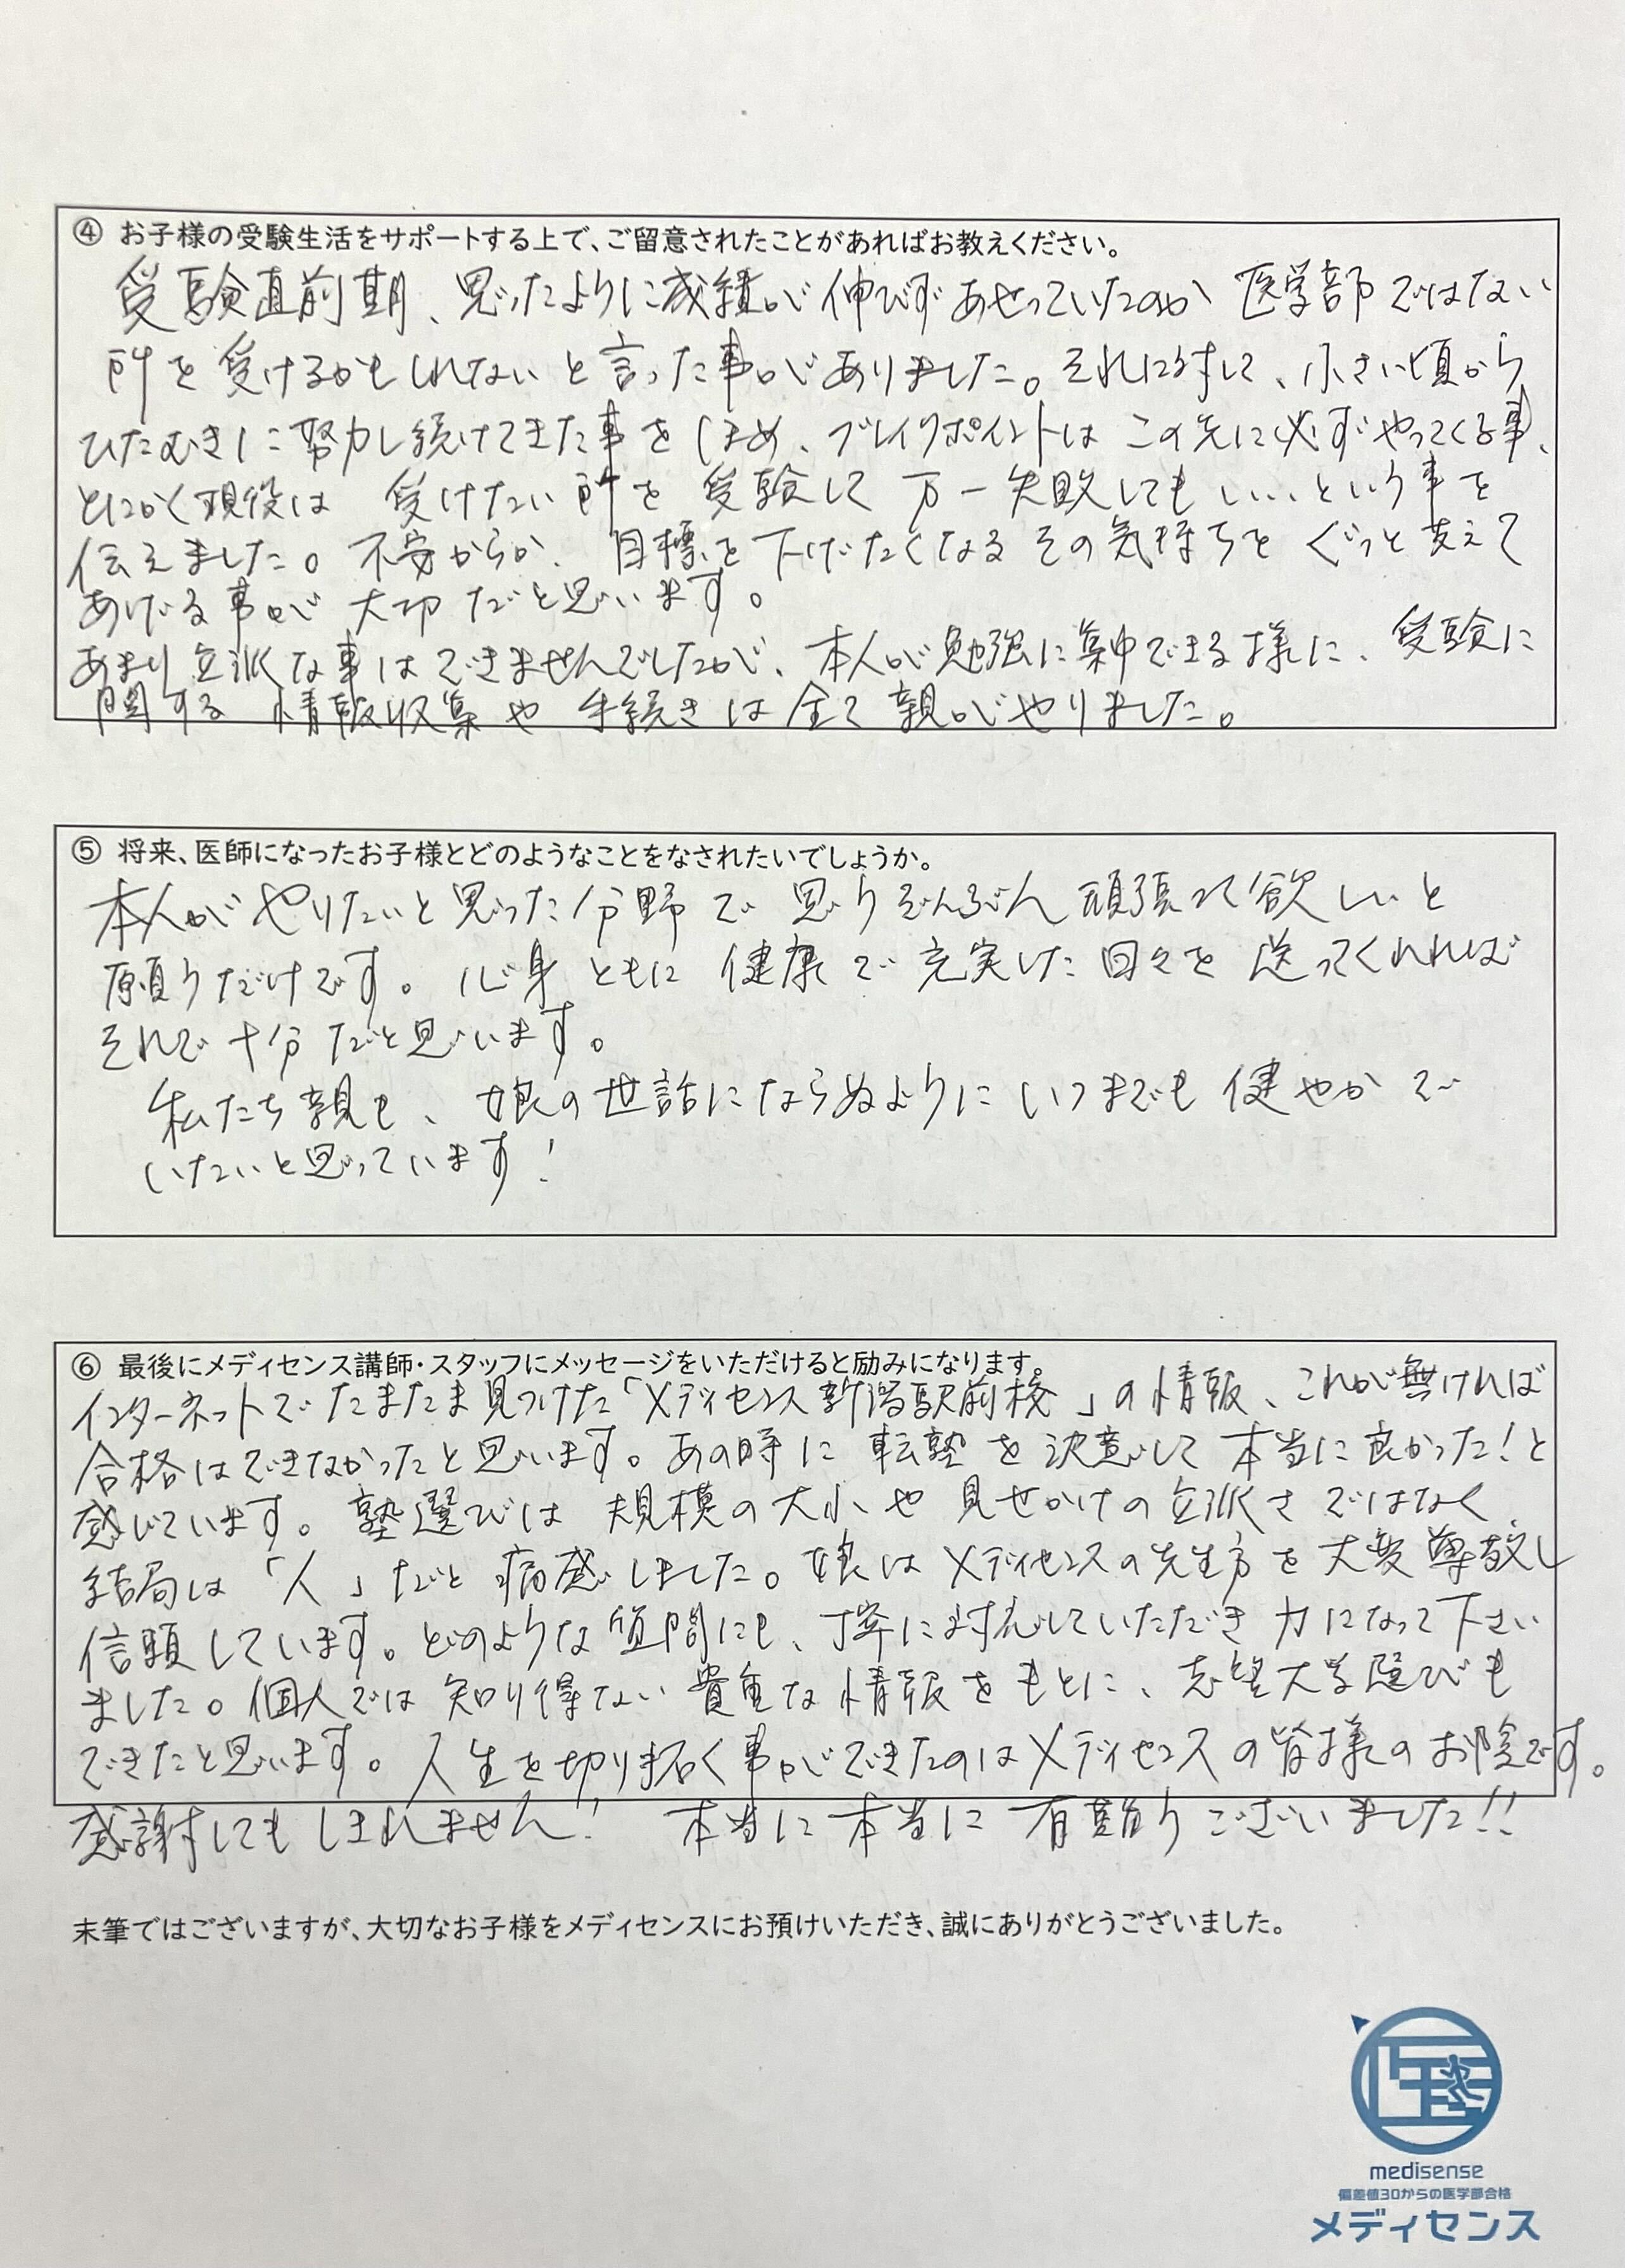 ④ お子様の受験生活をサポートする上で、ご留意されたことがあればお教えください。
受験直前期、思ったように成績が伸びずあせっていたのか 医学部ではない
所を受けるかもしれないと言った事がありました。それに対して、小さい頃から
ひたむきに努力し続けてきた事をほめ、ブレイクポイントはこの先に必ずやってくる事、
とにかく現役は 受けたい所を受験して万一失敗してもいい、という事を
伝えました。不安からか、目標を下げたくなるその気持ちをぐっと支えて
あげる事が大切だと思います。
あまり立派な事はできませんでしたが、本人が勉強に集中できる様に、受験に
関する情報収集や手続きは全て親がやりました。
⑤ 将来、医師になったお子様とどのようなことをなされたいでしょうか。
本人がやりたいと思った分野で思うぞんぶん頑張って欲しいと
願うだけです。心身ともに健康で充実した日々を送ってくれれば
それで十分だと思います。
私たち親も、娘の世話にならぬようにいつまでも健やかで
いたいと思っています!
⑥ 最後にメディセンス講師・スタッフにメッセージをいただけると励みになります。
インターネットでたまたま見つけた「メディセンス新潟駅前校」の情報、これが無ければ
合格はできなかったと思います。あの時に転塾を決意して本当に良かった!と
感じています。塾選びは規模の大小や見せかけの立派さではなく
結局は「人」だと痛感しました。娘はメディセンスの先生方を大変尊敬し
信頼しています。どのような質問にも、丁寧に対応していただき力になって下さい
ました。個人では知り得ない貴重な情報をもとに、志望大学選びも
できたと思います。人生を切り拓く事ができたのはメディセンスの皆様のお陰です。
感謝してもしきれません! 本当に本当に有難うございました!!
末筆ではございますが、大切なお子様をメディセンスにお預けいただき、誠にありがとうございました。
医
medisense
偏差値30からの医学部合格
メディセンス